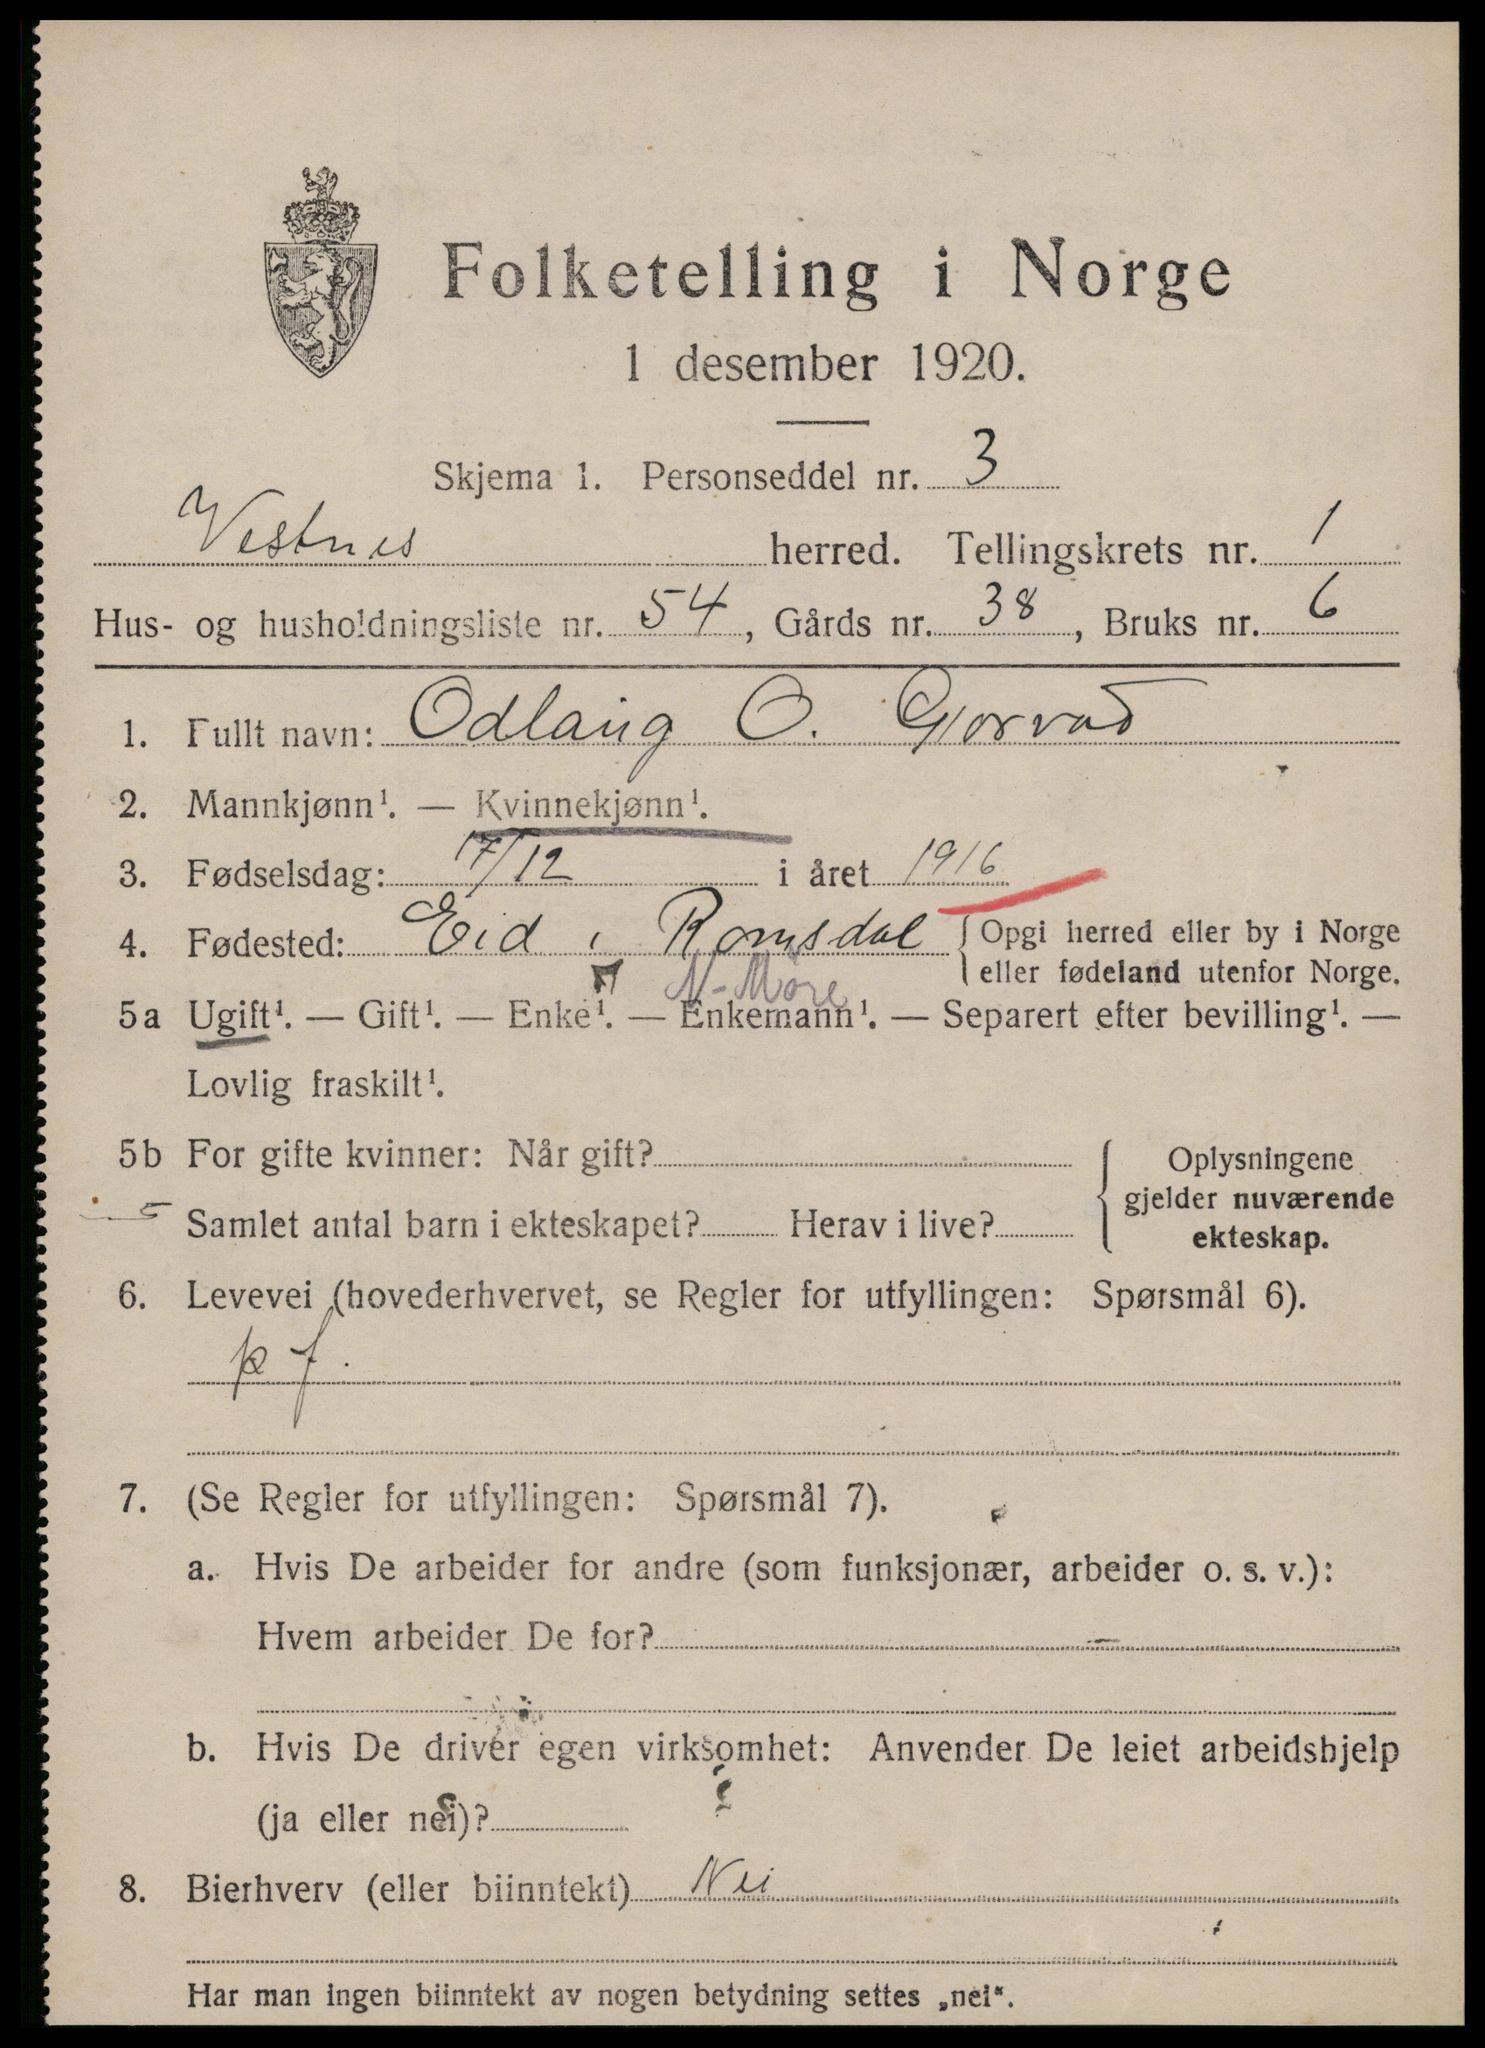 Folketelling i Norge
1 desember 1920.
Skjema 1. Personseddel nr. 3
Vestnes herred. Tellingskrets nr. 1
Hus- og husholdningsliste nr. 54, Gårds nr. 38, Bruks nr. 6
1. Fullt navn: Odlaug O. Gjorvad
2. Mannkjønn¹. — Kvinnekjønn¹.
3. Fødselsdag: 17/12 i året 1916
4. Fødested: Eid i Romsdal { Opgi herred eller by i Norge
eller fødeland utenfor Norge.
N-Möre
5a Ugift¹. — Gift¹. — Enke¹. — Enkemann¹. — Separert efter bevilling¹. —
Lovlig fraskilt¹.
5b For gifte kvinner: Når gift? { Oplysningene
gjelder nuværende
ekteskap.
5 Samlet antal barn i ekteskapet? Herav i live?
6. Levevei (hovederhvervet, se Regler for utfyllingen: Spørsmål 6).
f.
7. (Se Regler for utfyllingen: Spørsmål 7).
a. Hvis De arbeider for andre (som funksjonær, arbeider o. s. v.):
Hvem arbeider De for? —
b. Hvis De driver egen virksomhet: Anvender De leiet arbeidshjelp
(ja eller nei)?
8. Bierhverv (eller biinntekt) Nei
Har man ingen biinntekt av nogen betydning settes „nei“.